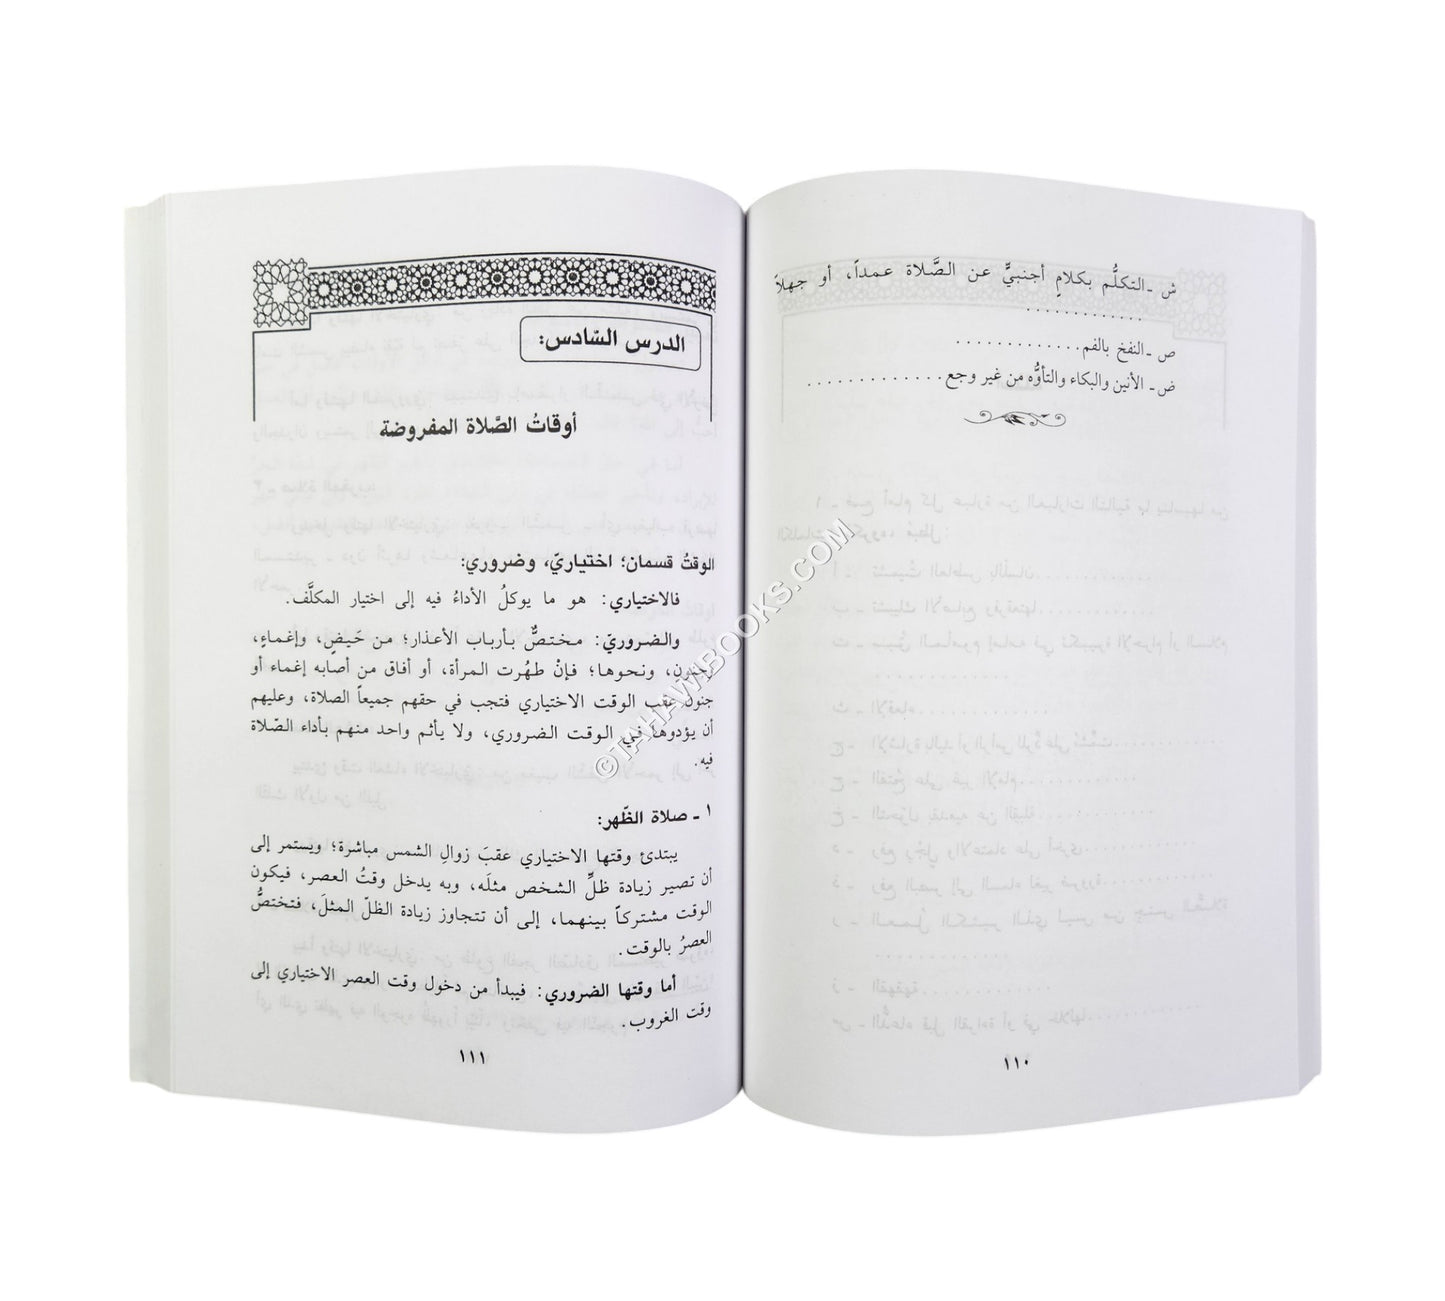 ش ـ التكلُّم بكلامٍ أجنبيٍّ عن الصَّلاة عمداً، أو جهلاً
............
ص ـ النفخ بالفم............
ض ـ الأنين والبكاء والتأوُّه من غير وجع.............
١١٠
الدرس السّادس:
أوقاتُ الصَّلاة المفروضة
الوقتُ قسمان؛ اختياريّ، وضروري:
فالاختياري: هو ما يوكلُ الأداءُ فيه إلى اختيار المكلَّف.
والضروريّ: مختصٌّ بأرباب الأعذار؛ من حَيضٍ، وإغماءٍ،
وجنون، ونحوها؛ فإنْ طهُرت المرأة، أو أفاق من أصابه إغماء أو
جنون عقب الوقت الاختياري فتجب في حقهم جميعاً الصلاة، وعليهم
أن يؤدوها في الوقت الضروري، ولا يأثم واحد منهم بأداء الصّلاة
فيه.
١ ـ صلاة الظّهر:
يبتدئ وقتها الاختياري عقبَ زوالِ الشمس مباشرة؛ ويستمر إلى
أن تصير زيادة ظلِّ الشخص مثلَه، وبه يدخل وقتُ العصر، فيكون
الوقت مشتركاً بينهما، إلى أن تتجاوز زيادة الظلّ المثلَ، فتختصُّ
العصرُ بالوقت.
أما وقتها الضروري: فيبدأ من دخول وقت العصر الاختياري إلى
وقت الغروب.
١١١
©TAHAWIBOOKS.COM